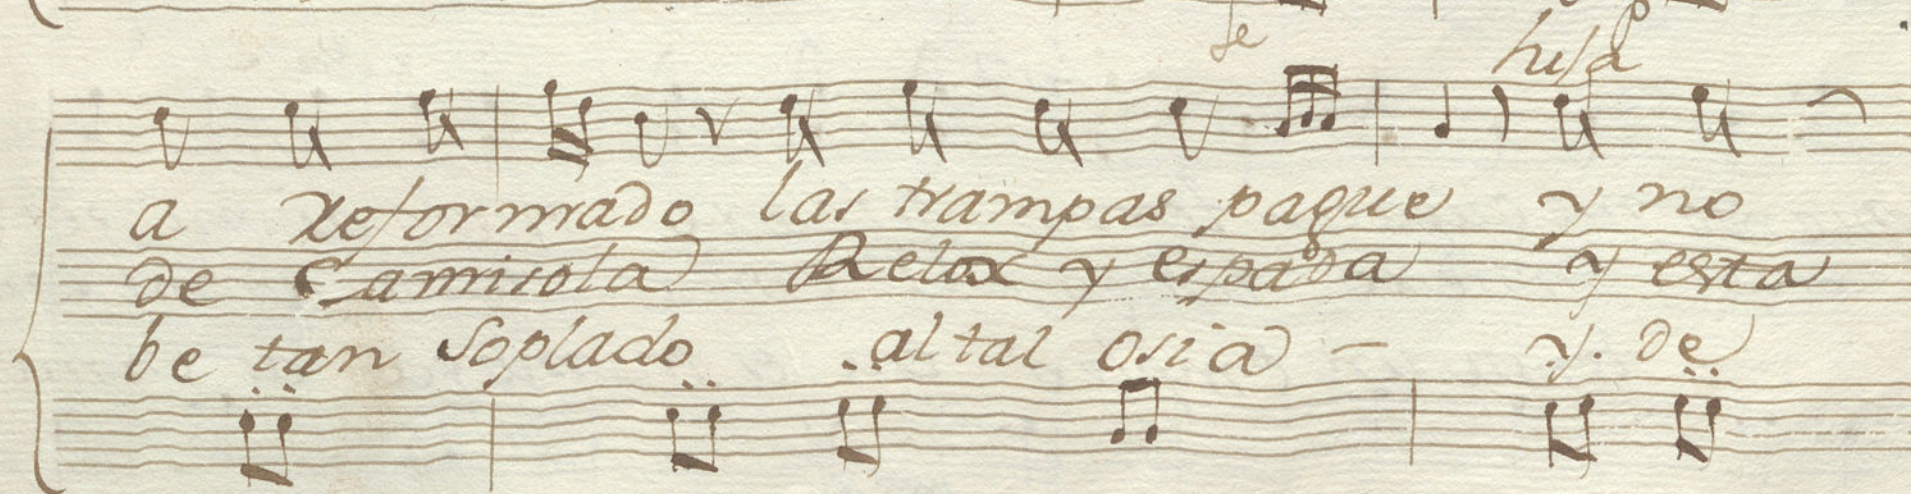 se hija
a reformado las trampas pague y no
de Camisola Relox y espada y esta
be tan soplado al tal osia - y. de